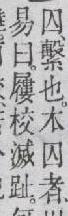 囚、繫也。本囚者、
易曰。屨校滅趾。